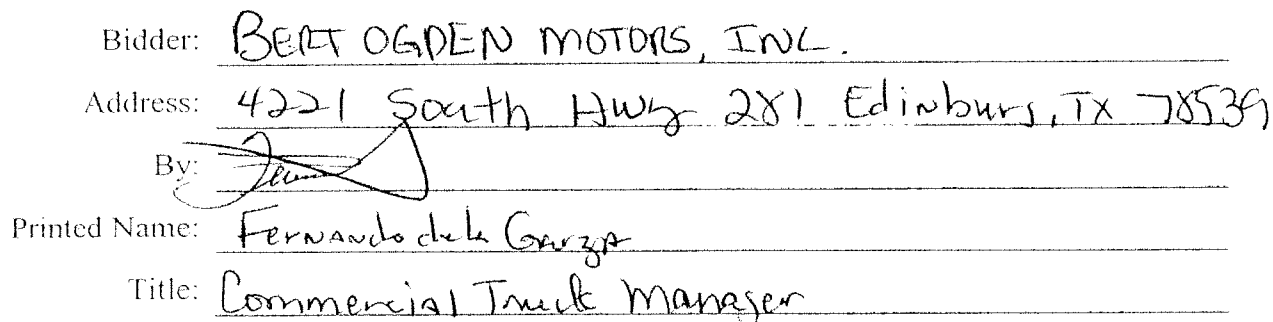 Bidder: BERT OGDEN MOTORS, INC.
Address: 4221 South Hwy 281 Edinburg, TX 78539
By:
Printed Name: Fernando de la Garza
Title: Commercial Truck Manager